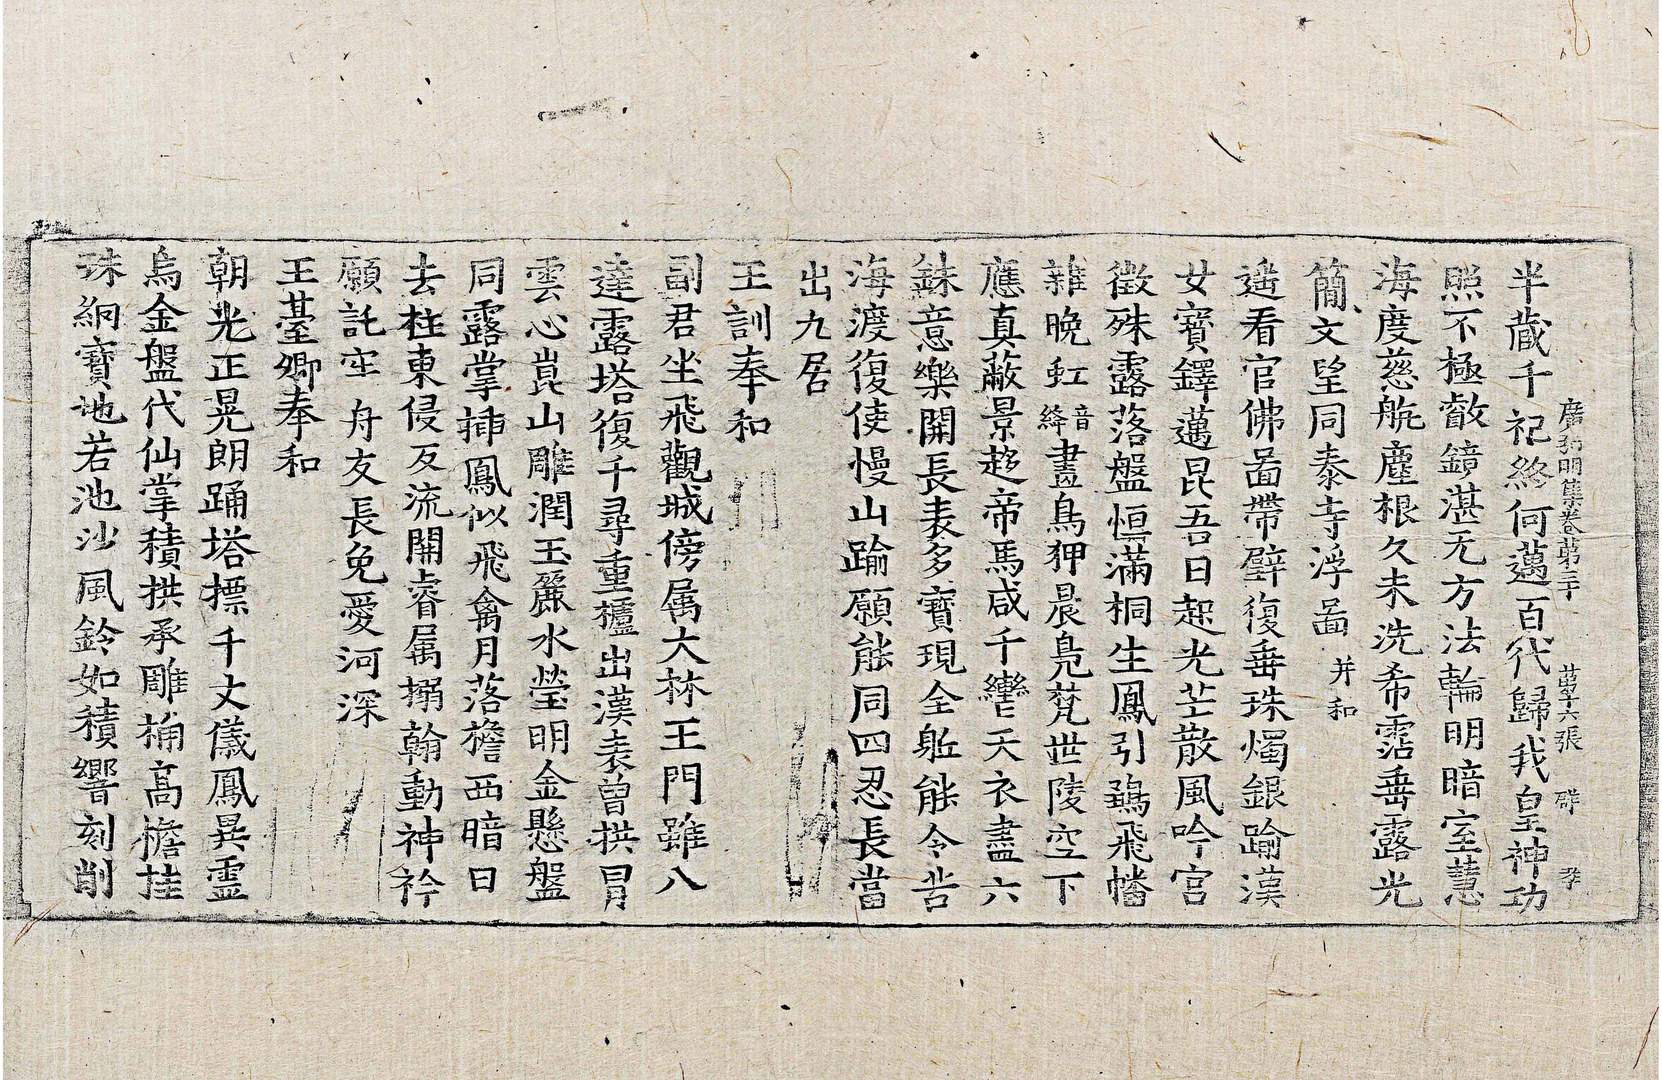 廣弘明集卷第三十　第十六張　群
半藏千祀終何邁百代歸我皇神功
照不極叡鏡湛无方法輪明暗室慧
海度慈航塵根久未洗希霑垂露光
簡文望同泰寺浮啚并和
遙看官佛啚帶壁復垂珠燭銀踰漢
女寶鐸邁昆吾日起光芒散風吟宮
徵殊露落盤恒滿桐生鳳引鶵飛幡
雜晚虹音絳畫鳥狎晨鳧梵世陵空下
應真蔽景趍帝馬咸千轡天衣盡六
銖意樂開長表多寶現全軀能令苦
海渡復使慢山踰願能同四忍長當
出九居
王訓奉和
副君坐飛觀城傍属大林王門雖八
達露塔復千尋重櫨出漢表曾拱冒
雲心崑山雕潤玉麗水瑩明金懸盤
同露掌捶鳳似飛禽月落檐西暗日
去柱東侵反流開睿属搦翰動神衿
願託牢舟友長免愛河深
王臺卿奉和
朝光正晃朗踊塔摽千丈儀鳳異靈
烏金盤代仙掌積拱承雕桷高檐挂
珠網寶地若池沙風鈴如積響刻削